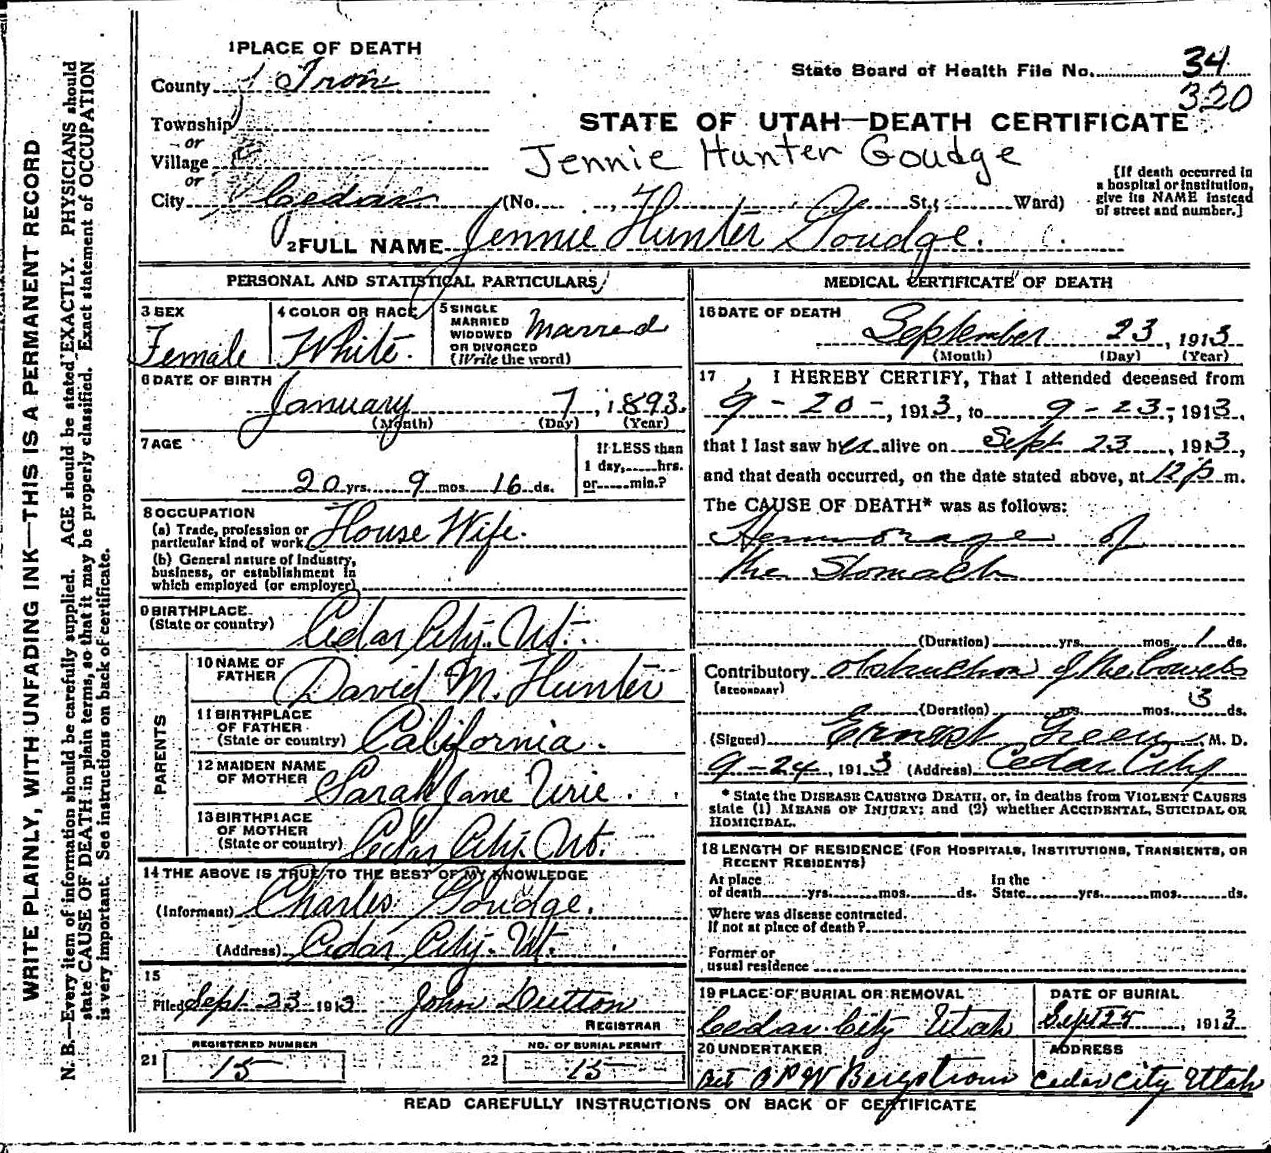 WRITE PLAINLY, WITH UNFADING INK—THIS IS A PERMANENT RECORD
N. B.—Every item of information should be carefully supplied. AGE should be stated EXACTLY. PHYSICIANS should
state CAUSE OF DEATH in plain terms, so that it may be properly classified. Exact statement of OCCUPATION
is very important. See instructions on back of certificate.
1 PLACE OF DEATH
County Iron
Township
or
Village
or
City Cedar (No. St.; Ward)
State Board of Health File No. 34
320
STATE OF UTAH—DEATH CERTIFICATE
Jennie Hunter Goudge
[If death occurred in
a hospital or institution,
give its NAME instead
of street and number.]
2 FULL NAME Jennie Hunter Goudge.
PERSONAL AND STATISTICAL PARTICULARS
3 SEX
Female
4 COLOR OR RACE
White.
5 SINGLE
MARRIED
WIDOWED
OR DIVORCED
(Write the word)
Married
6 DATE OF BIRTH
January 7, 1893.
(Month) (Day) (Year)
7 AGE
20 yrs. 9 mos. 16 ds.
If LESS than
1 day, hrs.
or min.?
8 OCCUPATION
(a) Trade, profession or
particular kind of work House Wife.
(b) General nature of industry,
business, or establishment in
which employed (or employer)
9 BIRTHPLACE
(State or country) Cedar City. Ut.
PARENTS
10 NAME OF
FATHER David M. Hunter
11 BIRTHPLACE
OF FATHER
(State or country) California.
12 MAIDEN NAME
OF MOTHER Sarah Jane Urie.
13 BIRTHPLACE
OF MOTHER
(State or country) Cedar City. Ut.
14 THE ABOVE IS TRUE TO THE BEST OF MY KNOWLEDGE
(Informant) Charles Goudge.
(Address) Cedar City. Ut.
15
Filed Sept 23 1913 John Dutton
REGISTRAR
21 REGISTERED NUMBER
15
22 NO. OF BURIAL PERMIT
15
MEDICAL CERTIFICATE OF DEATH
16 DATE OF DEATH
September 23, 1913
(Month) (Day) (Year)
17 I HEREBY CERTIFY, That I attended deceased from
9-20-, 1913, to 9-23-, 1913,
that I last saw her alive on Sept 23, 1913,
and that death occurred, on the date stated above, at 12 p m.
The CAUSE OF DEATH* was as follows:
Hemmorage of
the Stomach
(Duration) yrs. mos. 1 ds.
Contributory Obstruction of the bowels
(SECONDARY)
(Duration) yrs. mos. 3 ds.
(Signed) Ernest Green, M. D.
9-24, 1913 (Address) Cedar City
* State the DISEASE CAUSING DEATH, or, in deaths from VIOLENT CAUSES
state (1) MEANS OF INJURY; and (2) whether ACCIDENTAL, SUICIDAL OR
HOMICIDAL.
18 LENGTH OF RESIDENCE (FOR HOSPITALS, INSTITUTIONS, TRANSIENTS, OR
RECENT RESIDENTS)
At place
of death yrs. mos. ds.
In the
State yrs. mos. ds.
Where was disease contracted.
If not at place of death?
Former or
usual residence
19 PLACE OF BURIAL OR REMOVAL
Cedar City Utah
DATE OF BURIAL
Sept 25, 1913
20 UNDERTAKER
Bergstrom
ADDRESS
Cedar City Utah
READ CAREFULLY INSTRUCTIONS ON BACK OF CERTIFICATE